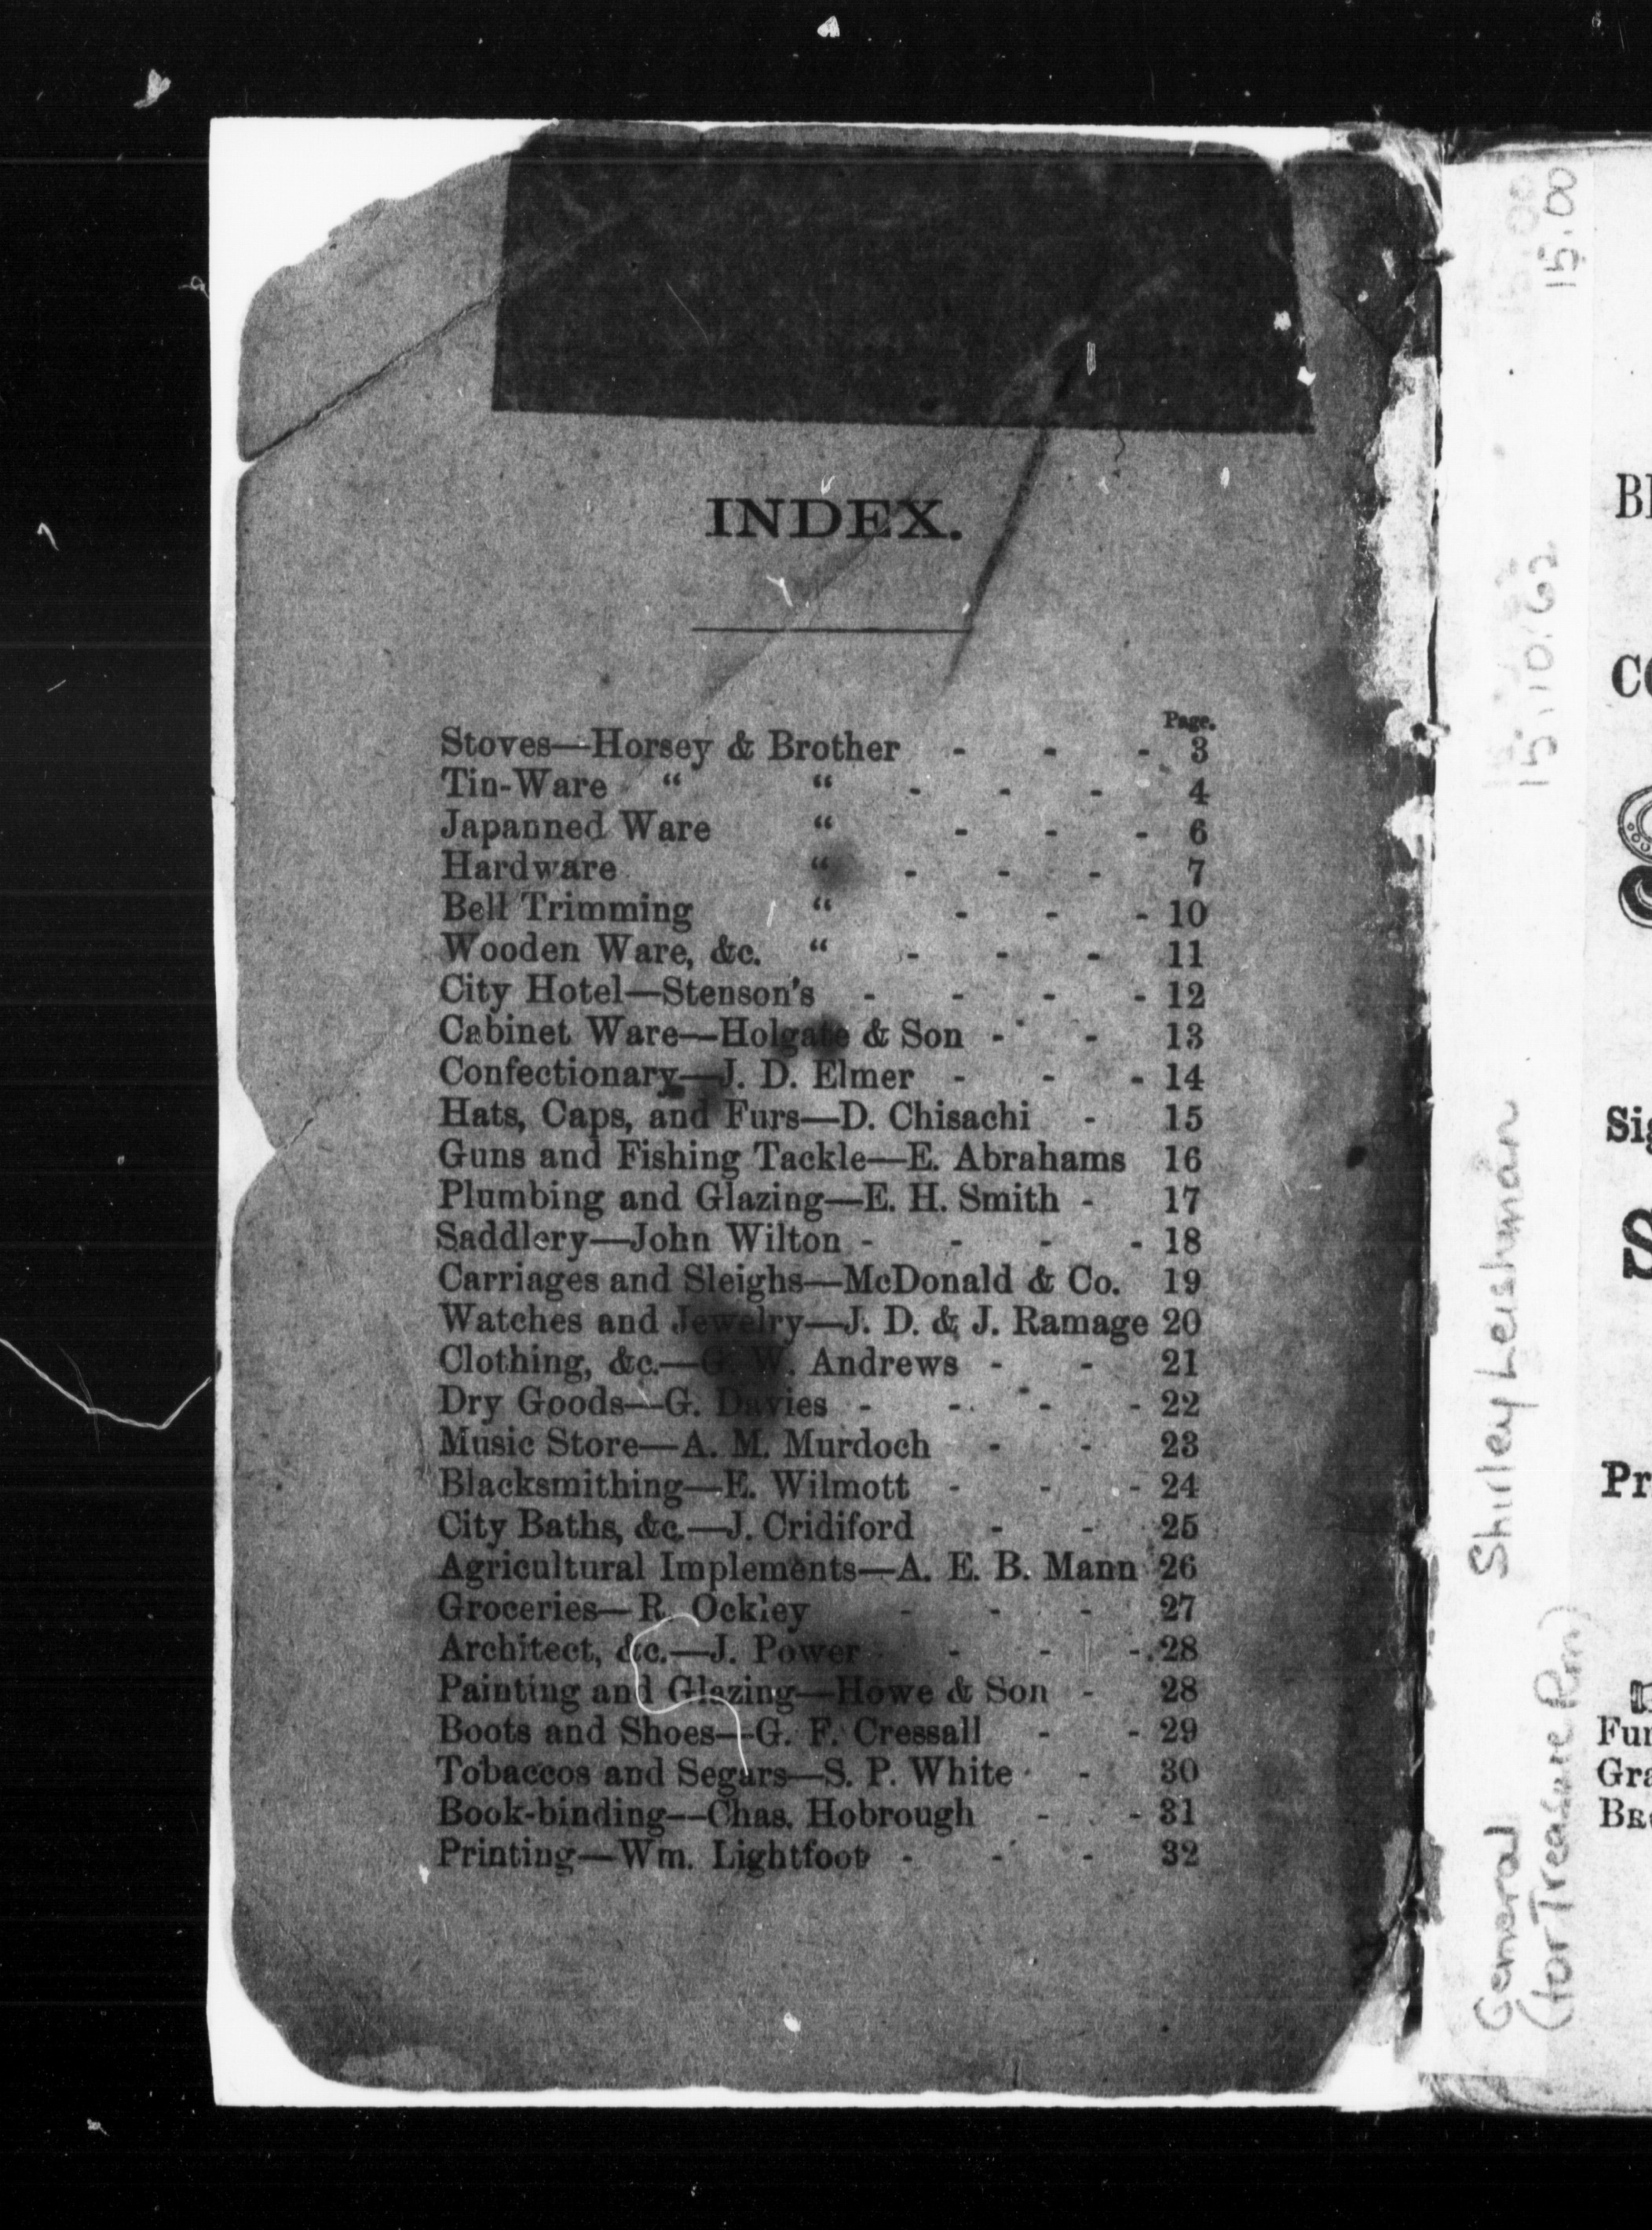 INDEX.
Page.
Stoves—Horsey & Brother - - - 3
Tin-Ware “ “ - - - 4
Japanned Ware “ - - - 6
Hardware “ - - - 7
Bell Trimming “ - - - 10
Wooden Ware, &c. “ - - - 11
City Hotel—Stenson's - - - - 12
Cabinet Ware—Holgate & Son - - 13
Confectionary—J. D. Elmer - - - 14
Hats, Caps, and Furs—D. Chisachi - 15
Guns and Fishing Tackle—E. Abrahams 16
Plumbing and Glazing—E. H. Smith - 17
Saddlery—John Wilton - - - - 18
Carriages and Sleighs—McDonald & Co. 19
Watches and Jewelry—J. D. & J. Ramage 20
Clothing, &c.—G. W. Andrews - - 21
Dry Goods—G. Davies - - - - 22
Music Store—A. M. Murdoch - - 23
Blacksmithing—E. Wilmott - - - 24
City Baths, &c.—J. Cridiford - - 25
Agricultural Implements—A. E. B. Mann 26
Groceries—R. Ockley - - - 27
Architect, &c.—J. Power - - - 28
Painting and Glazing—Howe & Son - 28
Boots and Shoes—G. F. Cressall - - 29
Tobaccos and Segars—S. P. White - 30
Book-binding—Chas. Hobrough - - 31
Printing—Wm. Lightfoot - - - 32
General Shirley Leishman
(for Treasure Rm) 15.10.62 15.00
CO
Sig
S
Pr
Fur
Gra